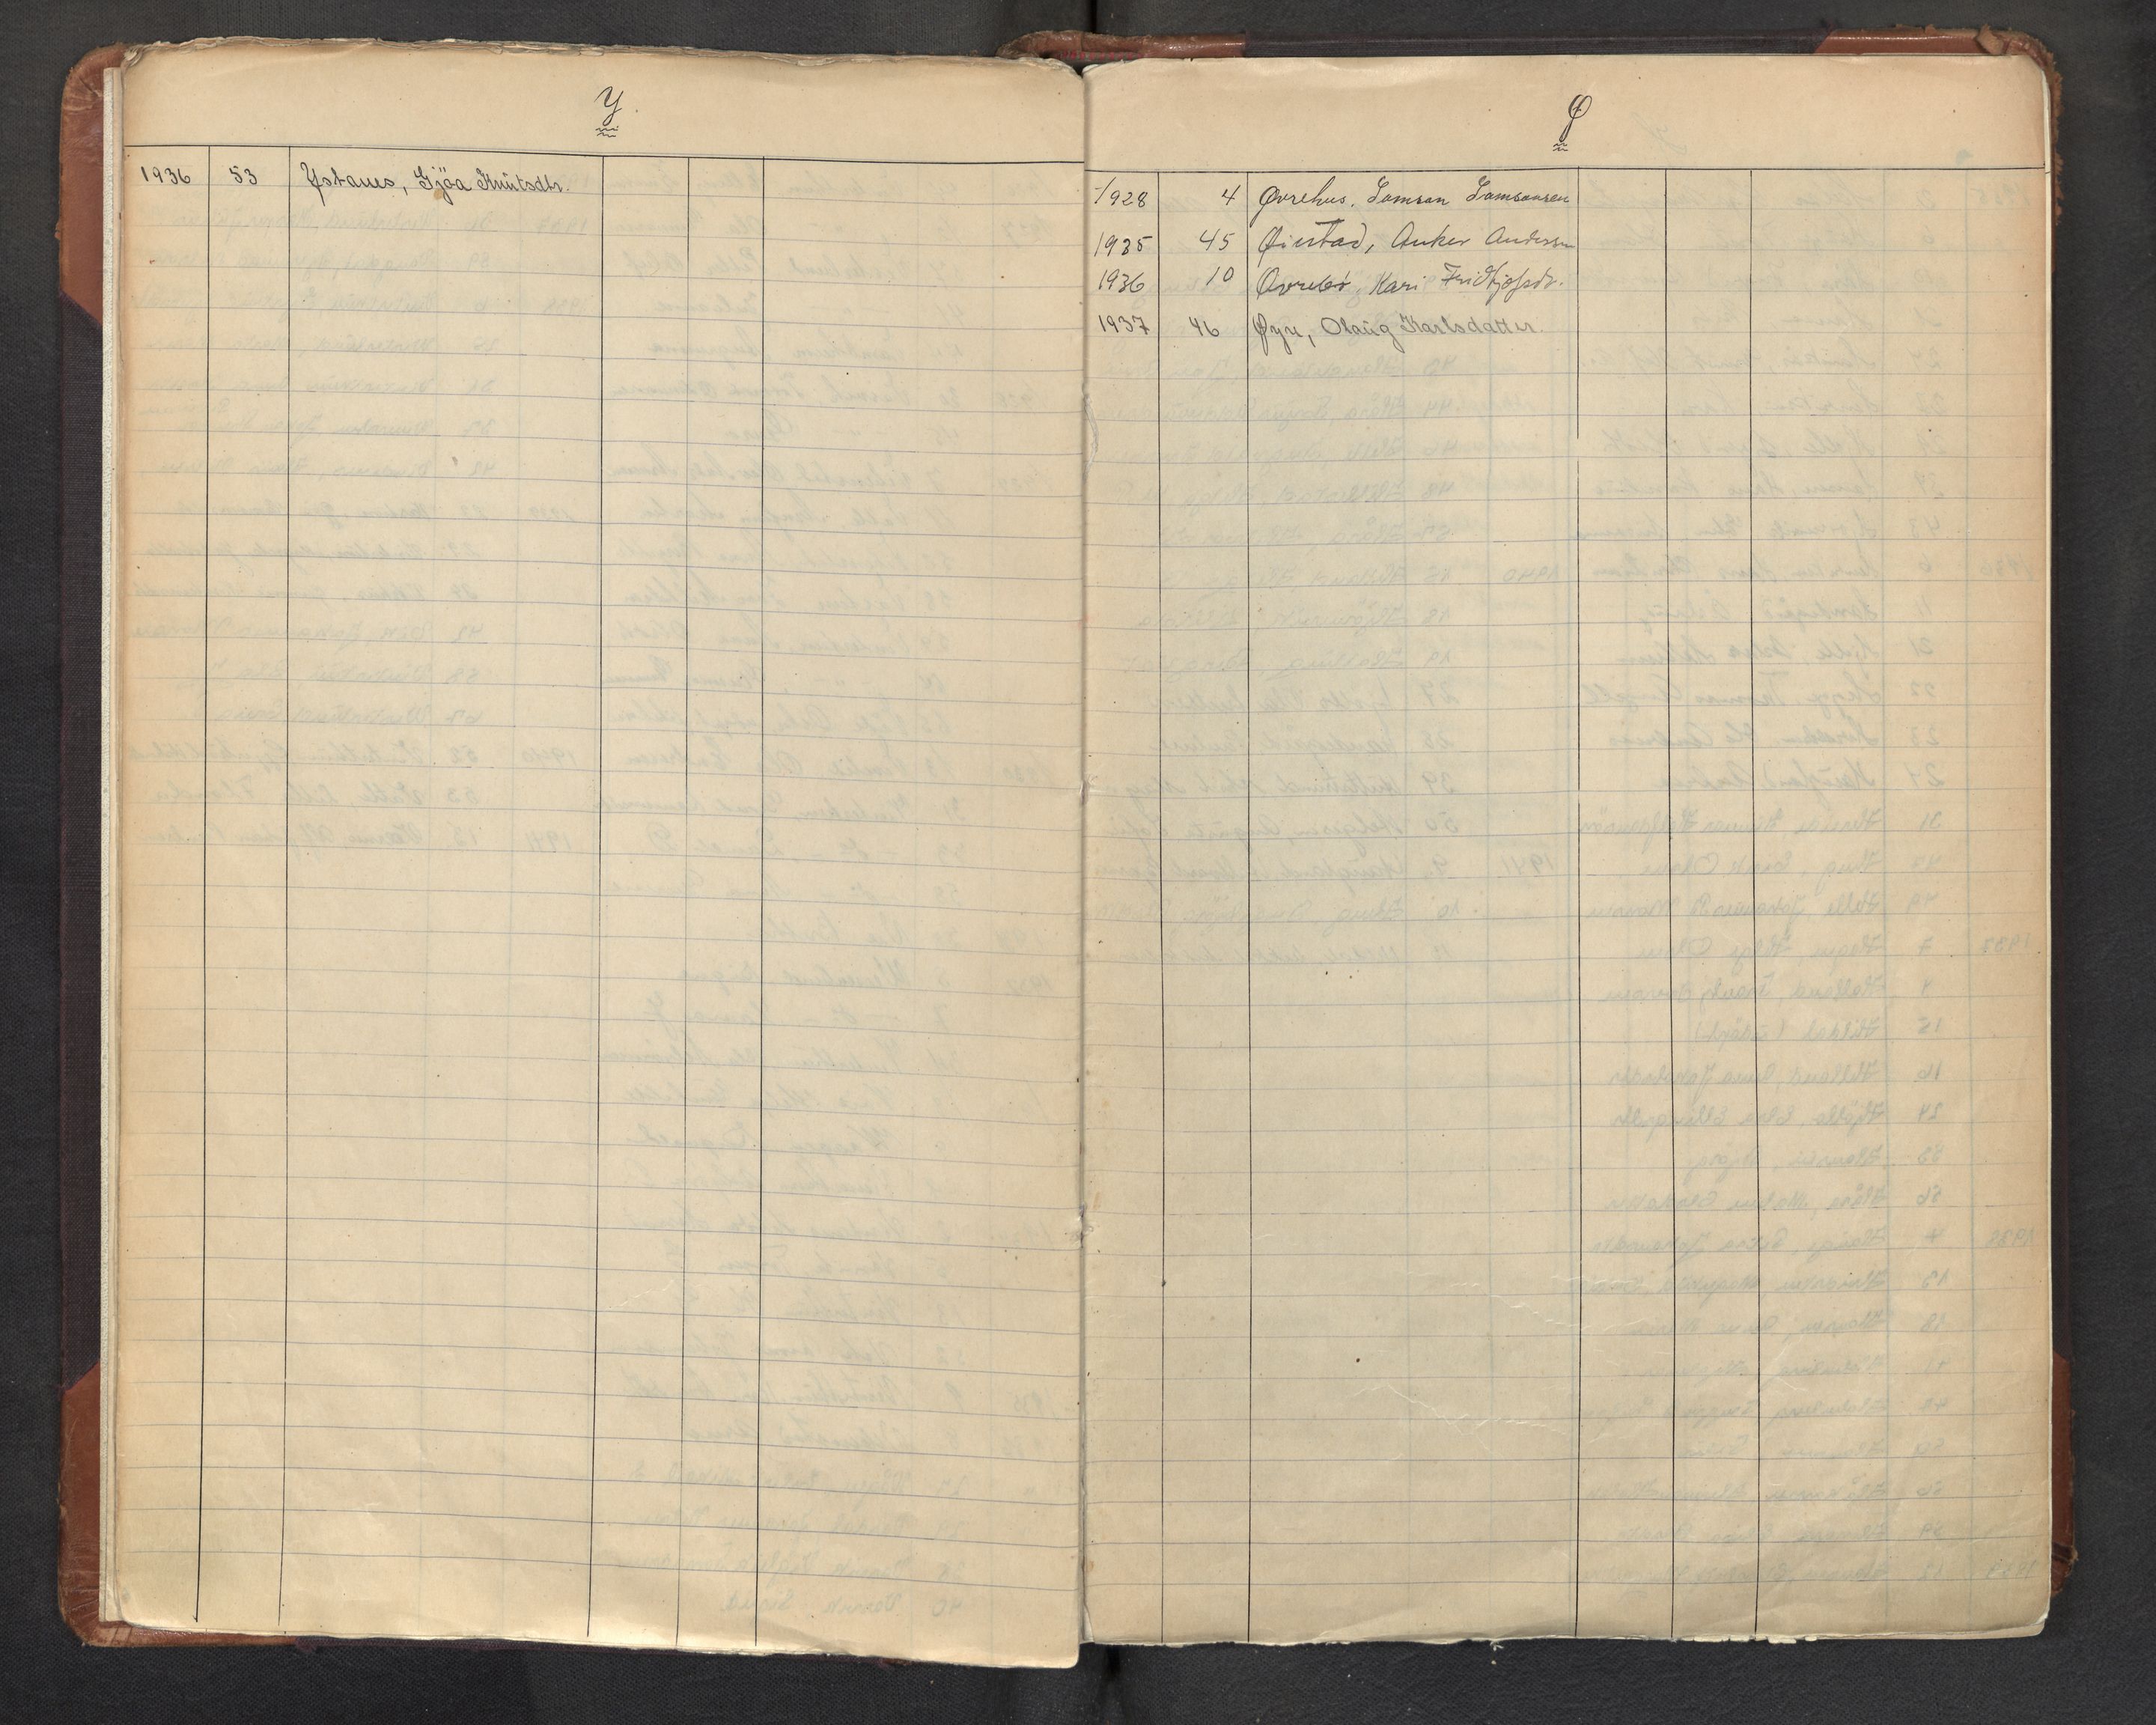 Y.
1936 53 Ystanes, Gjøa Knutsdtr.
Ø
1928 4 Øvrehus, Samson Samsonsen
1935 45 Øiestad, Anker Andersen
1936 10 Øvrebø, Kari Fridtjofsdtr.
1937 46 Øye, Olaug Karlsdatter.